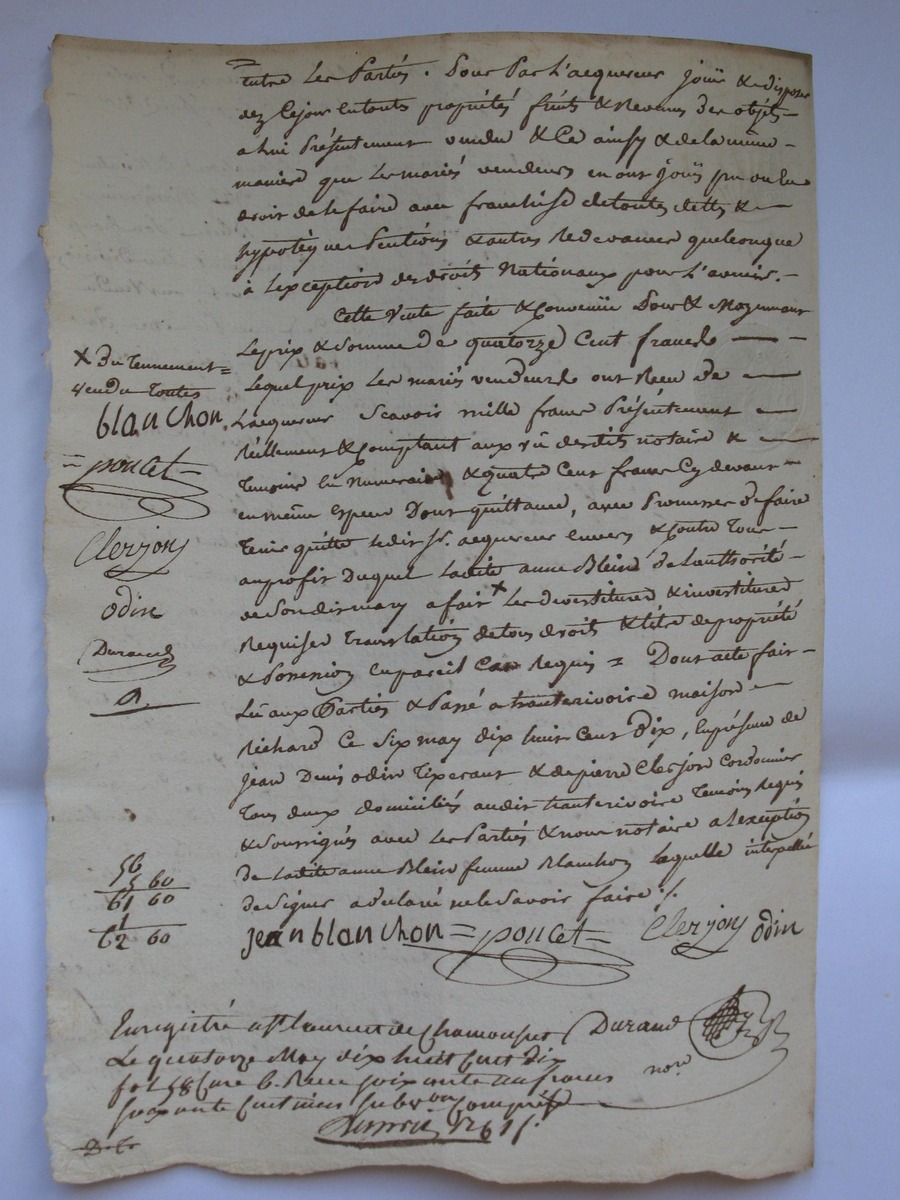 entre Les Partiés. Pour Par L'acquereur jouir & disposer
dez Cejour en toute propriétés fruits & Revenus des objéts
a Lui Présentement vendu & Ce ainsy & de la même
maniere que Les mariés vendeurs en ont joüis pu ou Eu
droit de le faire avec franchise de toutes dettes &
hypotéques Pentions & autres Redevances quelconque
à L'exception des droits Nationaux pour L'avenir.
Cette Vente faite & Convenüe Pour & Moyennant
Le prix & Somme de quatorze Cent francs
Lequel prix Les mariés vendeurs ont Reçu de
L'acquereur Scavoir mille francs Présentement
Réellement & Comptant aux vû desdits notaire &
temoins En Numeraire & quatre Cent francs Cy devant
en même Espece Dont quittance, avec Promesse de faire
tenir quitte ledit Sr. acquereur envers & Contre tous
au profit Duquel Ladite anne Blein de L'authorité
de Son dit mary a fait x Les devestitures & investitures
Requises translation de tous droits & titre de propriété
& Possession en pareil Cas Requis = Dont acte fait
Lû aux Parties & Passé a hauterivoire maison
Richard Ce Six may dix huit Cent dix, En présence de
Jean Denis odin Tixerant & de pierre Clerjon Cordonnier
tous deux domiciliés audit hauterivoire temoins Requis
& Soussignés avec Les Parties & nous notaire a L'exception
de Ladite anne Blein femme Blanchon Laquelle interpellée
de Signer a déclaré ne le Savoir faire ./.
jean blanchon = poucet = Clerjon odin
x du tennement
vendu toutes
blanchon
= poucet =
Clerjon
odin
Durand
56
5 60
61 60
1
62 60
Enregistré a St Laurent de Chamousset Durand
Le quatorze May dix huit Cent dix
fol 58 Case 6. Reçu soixante un francs nore
soixante Centimes Subvon Comprise